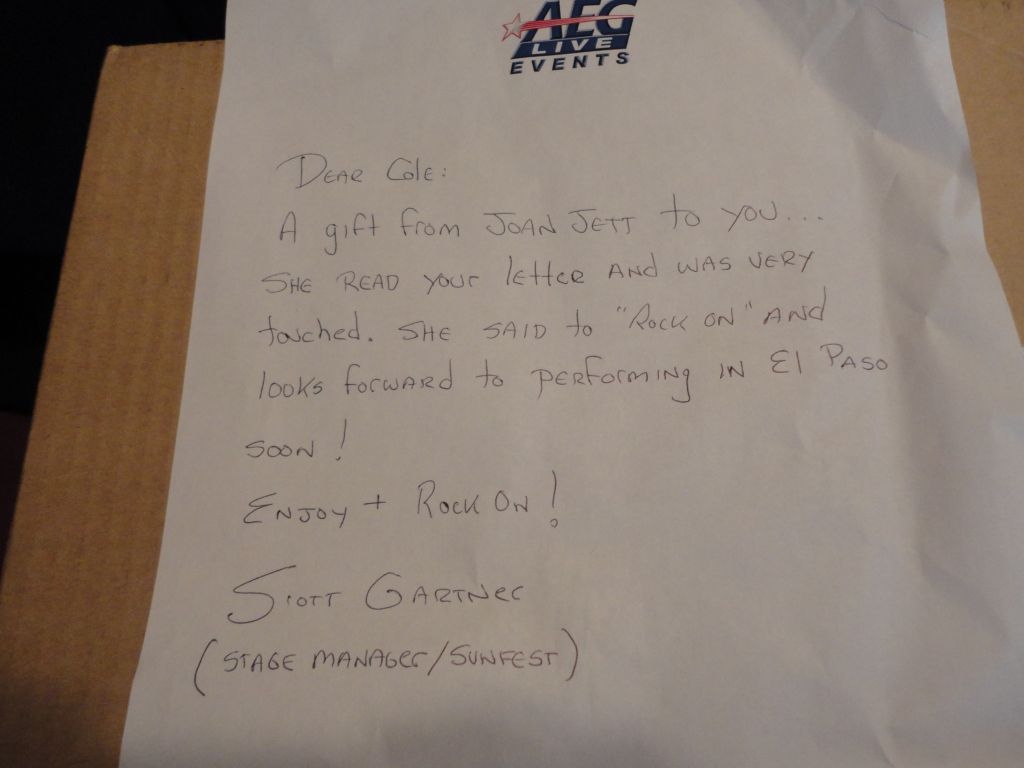 AEG
LIVE
EVENTS
DEAR Cole:
A gift from JOAN JETT to YOU...
SHE READ your letter AND WAS VERY
touched. SHE SAID to "ROCK ON" AND
looks forward to performing IN El PASO
SOON!
ENJOY + ROCK ON!
SCOTT GARTNER
(STAGE MANAGER/SUNFEST)